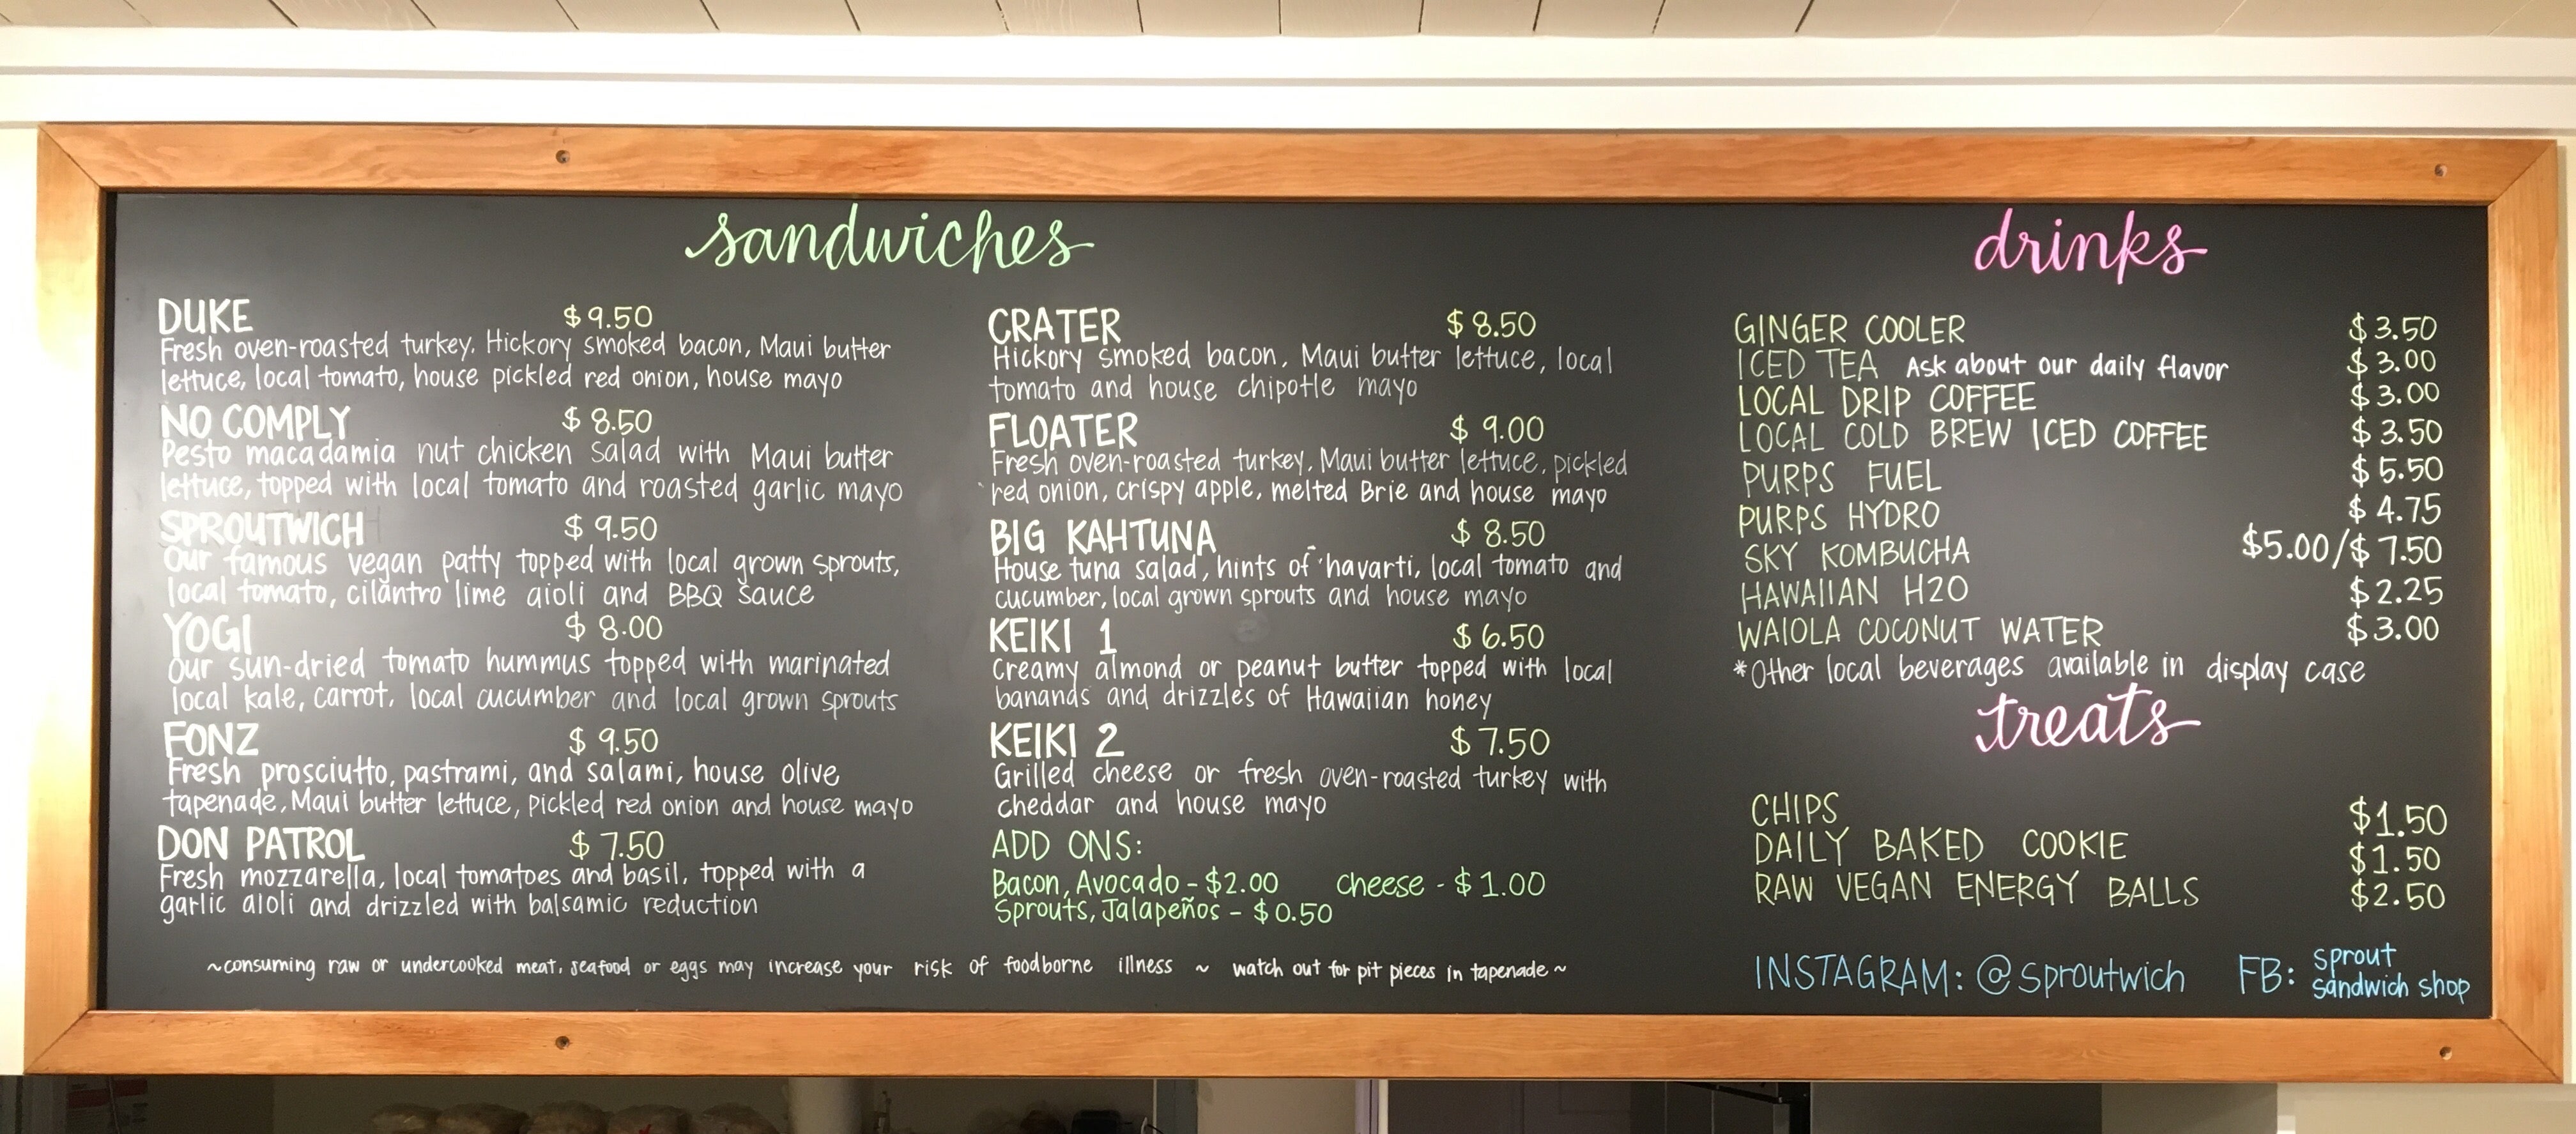 sandwiches
DUKE $9.50
Fresh oven-roasted turkey, Hickory smoked bacon, Maui butter
lettuce, local tomato, house pickled red onion, house mayo
NO COMPLY $8.50
Pesto macadamia nut chicken salad with Maui butter
lettuce, topped with local tomato and roasted garlic mayo
SPROUTWICH $9.50
Our famous vegan patty topped with local grown sprouts,
local tomato, cilantro lime aioli and BBQ sauce
YOGI $8.00
Our sun-dried tomato hummus topped with marinated
local kale, carrot, local cucumber and local grown sprouts
FONZ $9.50
Fresh prosciutto, pastrami, and salami, house olive
tapenade, Maui butter lettuce, pickled red onion and house mayo
DON PATROL $7.50
Fresh mozzarella, local tomatoes and basil, topped with a
garlic aioli and drizzled with balsamic reduction
CRATER $8.50
Hickory smoked bacon, Maui butter lettuce, local
tomato and house chipotle mayo
FLOATER $9.00
Fresh oven-roasted turkey, Maui butter lettuce, pickled
red onion, crispy apple, melted Brie and house mayo
BIG KAHTUNA $8.50
House tuna salad, hints of havarti, local tomato and
cucumber, local grown sprouts and house mayo
KEIKI 1 $6.50
Creamy almond or peanut butter topped with local
banands and drizzles of Hawaiian honey
KEIKI 2 $7.50
Grilled cheese or fresh oven-roasted turkey with
cheddar and house mayo
ADD ONS:
Bacon, Avocado - $2.00 Cheese - $1.00
Sprouts, Jalapeños - $0.50
~consuming raw or undercooked meat, seafood or eggs may increase your risk of foodborne illness ~ watch out for pit pieces in tapenade~
drinks
GINGER COOLER $3.50
ICED TEA Ask about our daily flavor $3.00
LOCAL DRIP COFFEE $3.00
LOCAL COLD BREW ICED COFFEE $3.50
PURPS FUEL $5.50
PURPS HYDRO $4.75
SKY KOMBUCHA $5.00/$7.50
HAWAIIAN H2O $2.25
WAIOLA COCONUT WATER $3.00
*Other local beverages available in display case
treats
CHIPS $1.50
DAILY BAKED COOKIE $1.50
RAW VEGAN ENERGY BALLS $2.50
INSTAGRAM: @sproutwich FB: sprout
sandwich shop